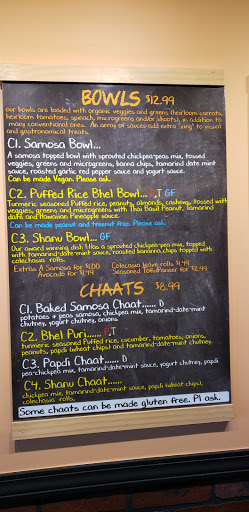 BOWLS $12.99
our bowls are loaded with organic veggies and greens (heirloom carrots,
heirloom tomatoes, spinach, microgreens and/or shoots), in addition to
many conventional ones. An array of sauces add extra "zing" to visual
and gastronomical treats.
C1. Samosa Bowl...
A samosa topped bowl with sprouted chickpea-peas mix, tossed
veggies, greens and microgreens, banana chips, tamarind date mint
sauce, roasted garlic red pepper sauce and yogurt sauce.
Can be made Vegan. Please ask.
C2. Puffed Rice Bhel Bowl... P,T GF
Turmeric seasoned Puffed rice, peanuts, almonds, cashews, tossed with
veggies, greens and microgreens, with Thai Basil Peanut, Tamarind
date and Hawaiian Pineapple sauce.
Can be made peanut and treenut free. Please ask.
C3. Shanu Bowl... GF
Our award winning dish! Has a sprouted chickpea-pea mix, topped
with tamarind-date-mint sauce, roasted bananas, chips topped with
colechasia rolls.
Extra: A Samosa for $1.00 Colecasia Root rolls $1.99
Avocado for $1.49 Seasoned Tofu/Paneer for $2.99
CHAATS $8.99
C1. Baked Samosa Chaat...... D
potatoes & peas samosa, chickpea mix, tamarind-date-mint
chutney, yogurt chutney, onions
C2. Bhel Puri...... P,T
turmeric seasoned Puffed rice, cucumber, tomatoes, onions,
peanuts, papdi (wheat chips) and tamarind-date-mint chutney.
C3. Papdi Chaat...... D
pea-chickpea mix, tamarind-date-mint sauce, yogurt chutney, papdi
C4. Shanu Chaat......
chickpea mix, tamarind-date-mint sauce, papdi (wheat chips),
colechasia rolls.
Some chaats can be made gluten free. Pl ask.